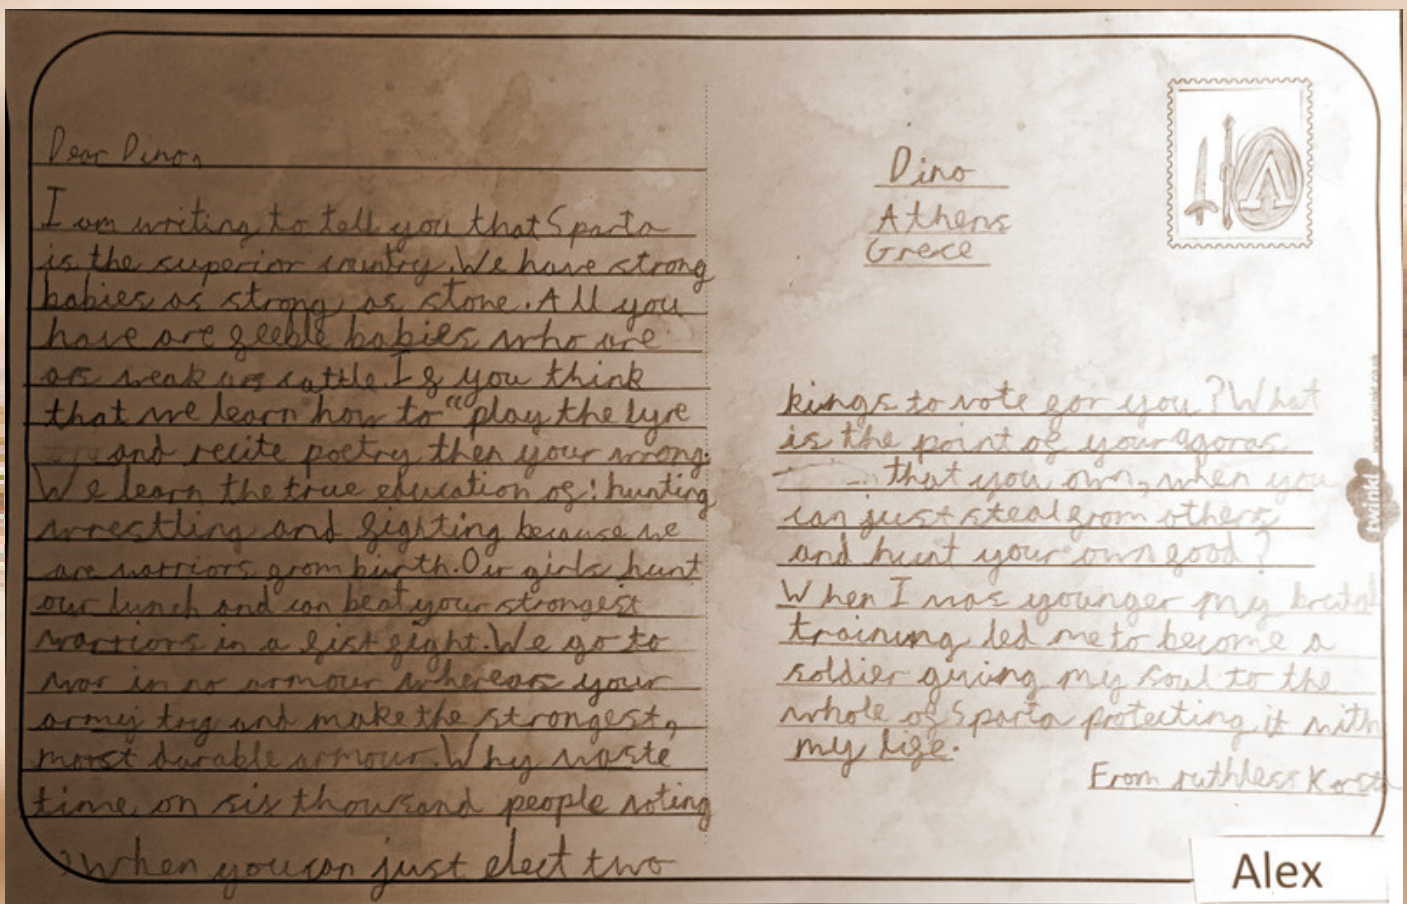 Dear Dino,
I am writing to tell you that Sparta
is the superior country. We have strong
babies as strong as stone. All you
have are feeble babies who are
as weak as cattle. If you think
that we learn how to "play the lyre
and recite poetry then your wrong.
We learn the true education of: hunting
wrestling and fighting because we
are warriors from birth. Our girls hunt
our lunch and can beat your strongest
warriors in a fist fight. We go to
war in no armour whereas your
army try and make the strongest,
most durable armour. Why waste
time on six thousand people voting
, When you can just elect two
Dino
Athens
Grece
kings to vote for you? What
is the point of your agoras
that you own, when you
can just steal from others
and hunt your own good?
When I was younger my brutal
training led me to become a
soldier giving my soul to the
whole of Sparta protecting it with
my life.
From ruthless
Alex
Λ
www.twinkl.co.uk
twinkl